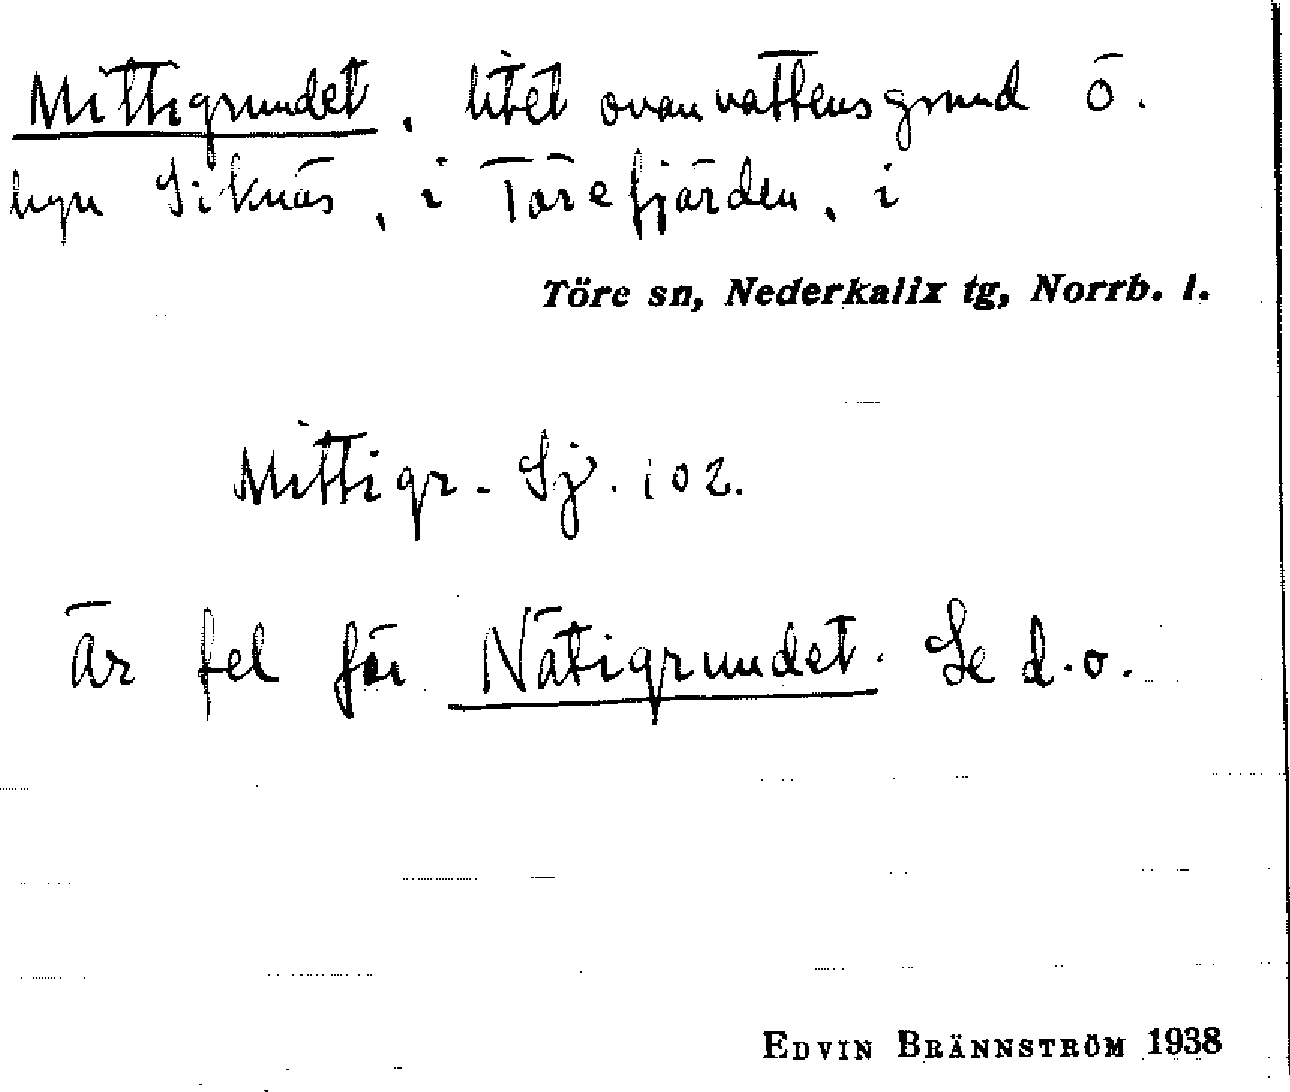 Mittigrundet, litet ovanvattensgrund ö.
byn Siknäs, i Törefjärden, i
Töre sn, Nederkalix tg, Norrb. l.
Mittigr- Sj. 102.
Är fel för Nätigrundet. Se d.o.
EDVIN BRÄNNSTRÖM 1938